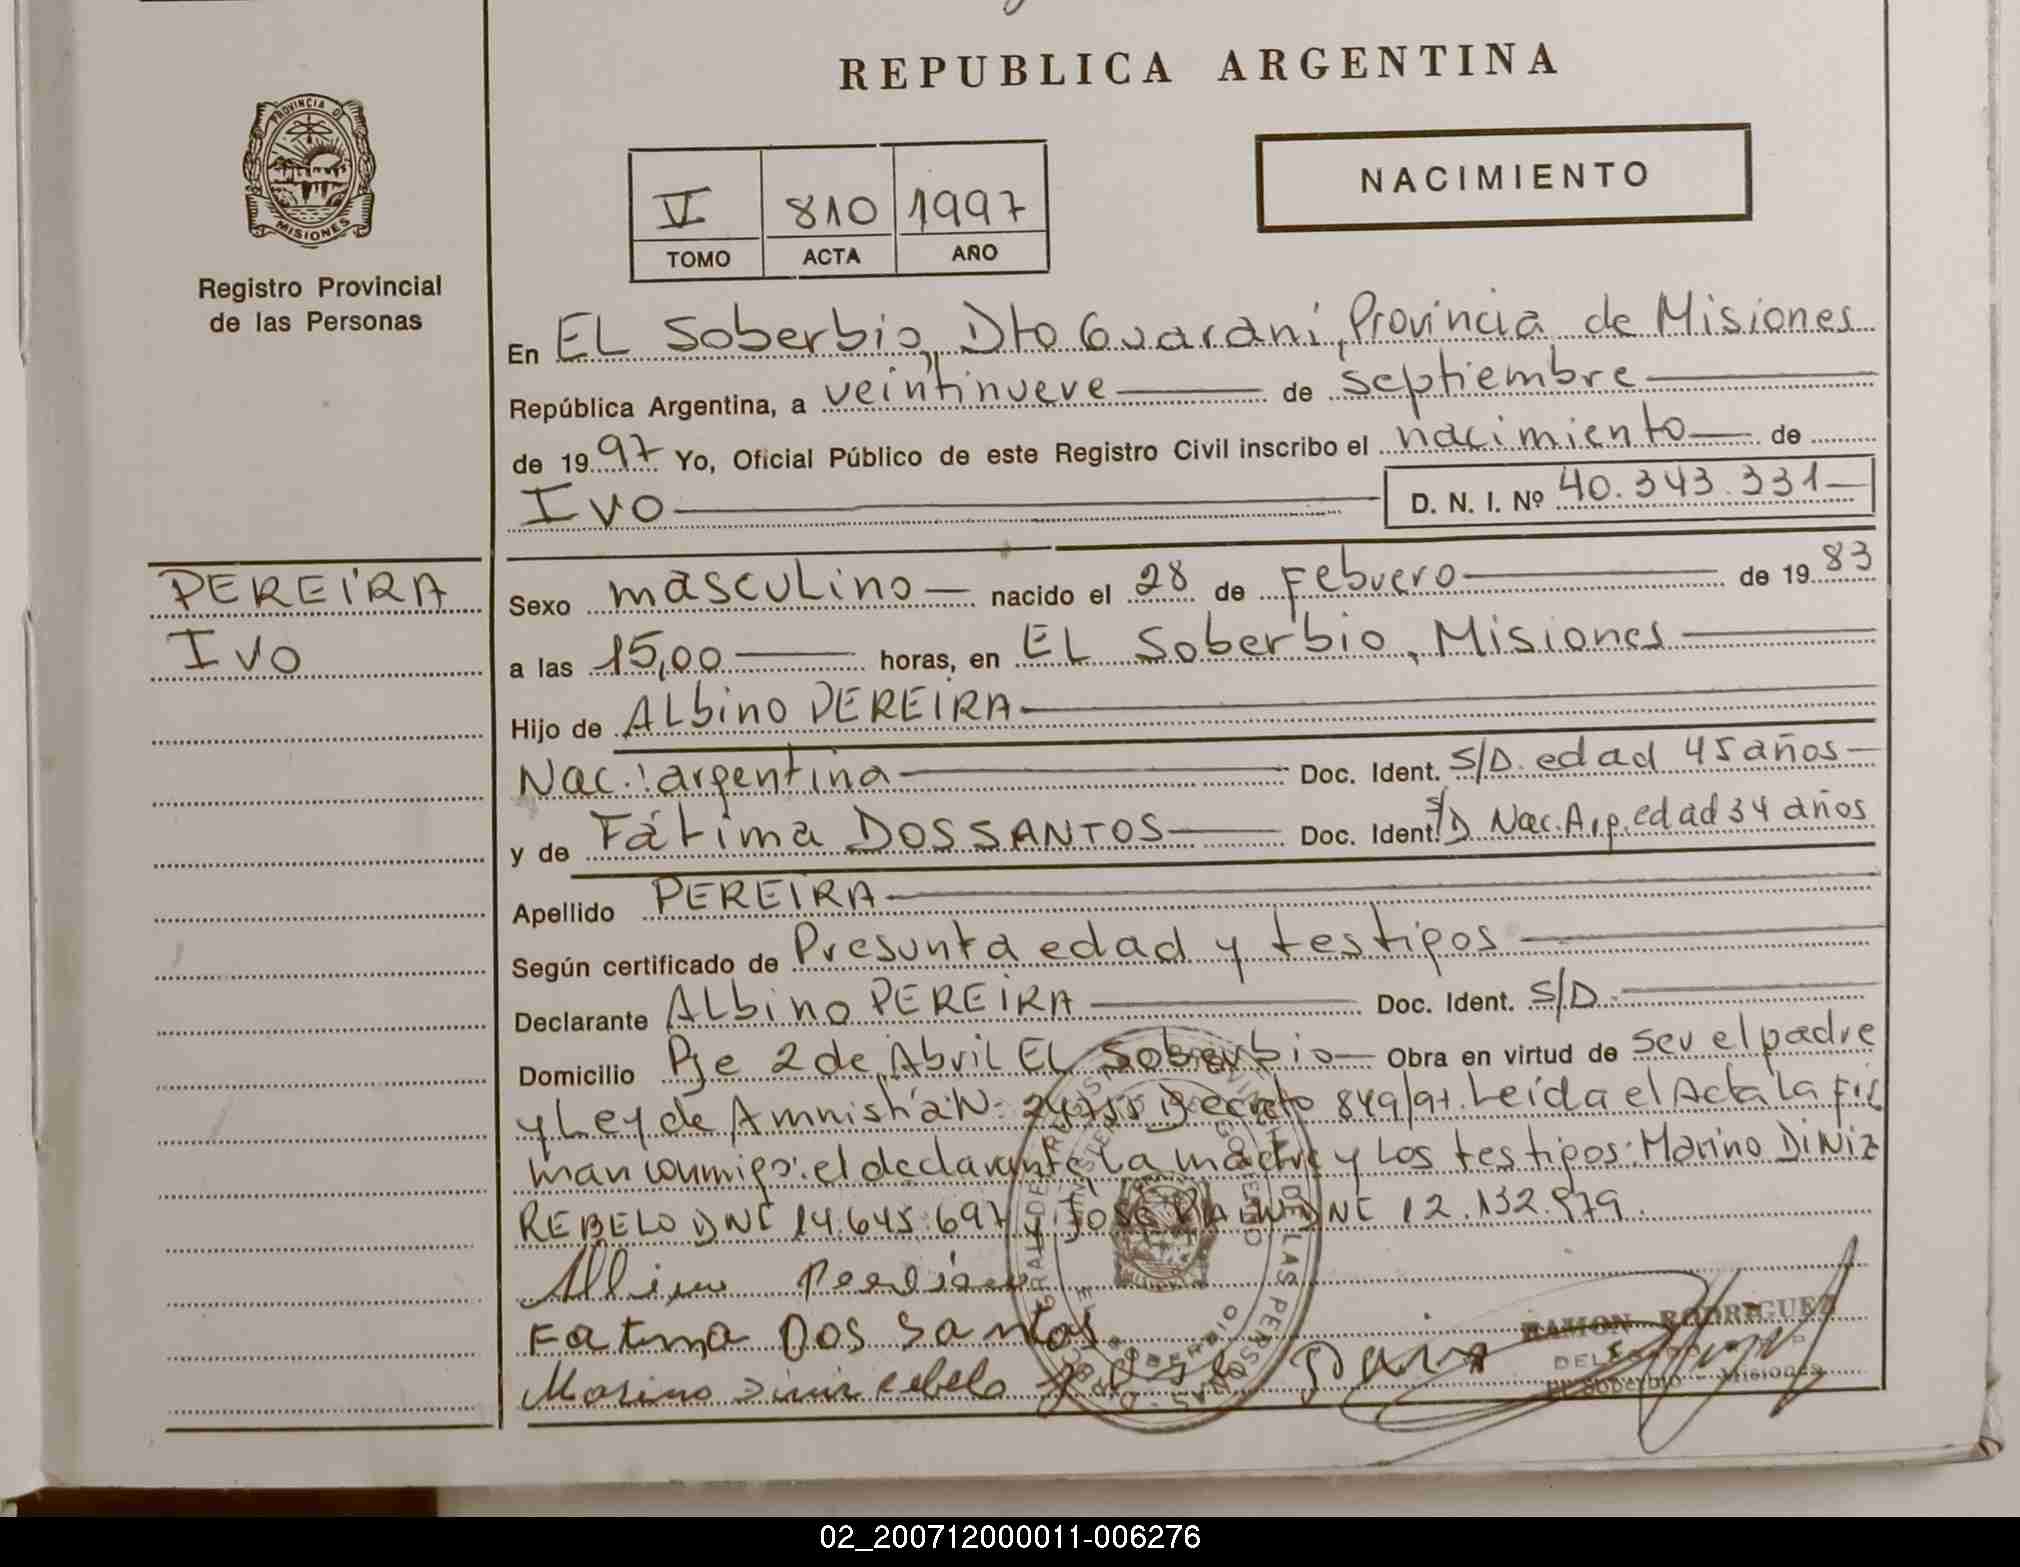 REPUBLICA ARGENTINA
PROVINCIA DE
MISIONES
Registro Provincial
de las Personas
V 810 1997
TOMO ACTA AÑO
NACIMIENTO
En EL Soberbio, Dto Guaraní, Provincia de Misiones
República Argentina, a veintinueve de septiembre
de 1997 Yo, Oficial Público de este Registro Civil inscribo el nacimiento de
Ivo D. N. I. Nº 40.343.331
PEREIRA
Ivo
Sexo masculino nacido el 28 de Febrero de 1983
a las 15,00 horas, en EL Soberbio, Misiones
Hijo de ALbino PEREIRA
Nac.: argentina Doc. Ident. S/D. edad 45 años
y de Fátima DOS SANTOS Doc. Ident. S/D Nac. Arg. edad 34 años
Apellido PEREIRA
Según certificado de Presunta edad y testigos
Declarante ALbino PEREIRA Doc. Ident. S/D.
Domicilio Pje 2 de Abril EL Soberbio Obra en virtud de ser el padre
y Ley de Amnistía N: 24755 Decreto 849/97. Leída el Acta La fir
man conmigo: el declarante, La madre y Los testigos: Marino DINIZ
REBELO DNI 14.645.697 y José DNI 12.132.979.
Albino Pereira
Fatima Dos Santos
Marino Diniz rebelo
RAMON RODRIGUEZ
El Soberbio - Misiones
02_200712000011-006276